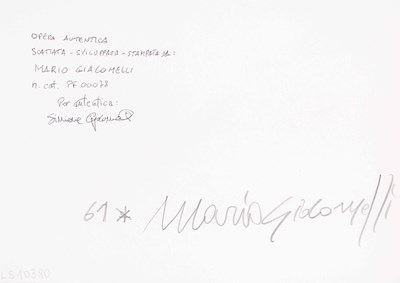 OPERA AUTENTICA
SCATTATA - SVILUPPATA - STAMPATA DA:
MARIO GIACOMELLI
n. cat. PF 00078
Per autentica:
Simone Giacomelli
61 * Mario Giacomelli
LS 10380